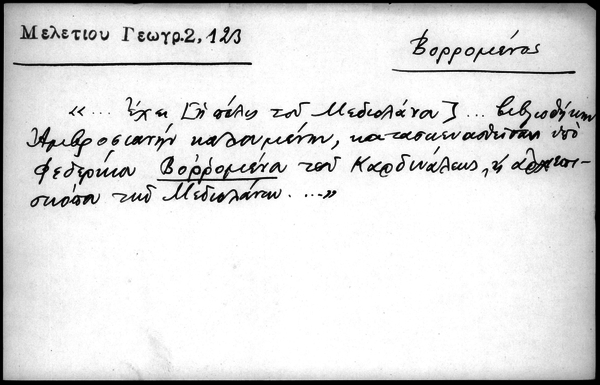 Μελετίου Γεωγρ. 2, 123
Βορρομένος
«... Ἔχει [ἡ πόλις τοῦ Μεδιολάνου] ... βιβλιοθήκην
Ἀμβροσιανὴν καλουμένην, κατασκευασθεῖσαν ὑπὸ
Φεδερίκου Βοῤῥομένου τοῦ Καρδινάλεως, καὶ ἀρχιεπι-
σκόπου τοῦ Μεδιολάνου. ...»